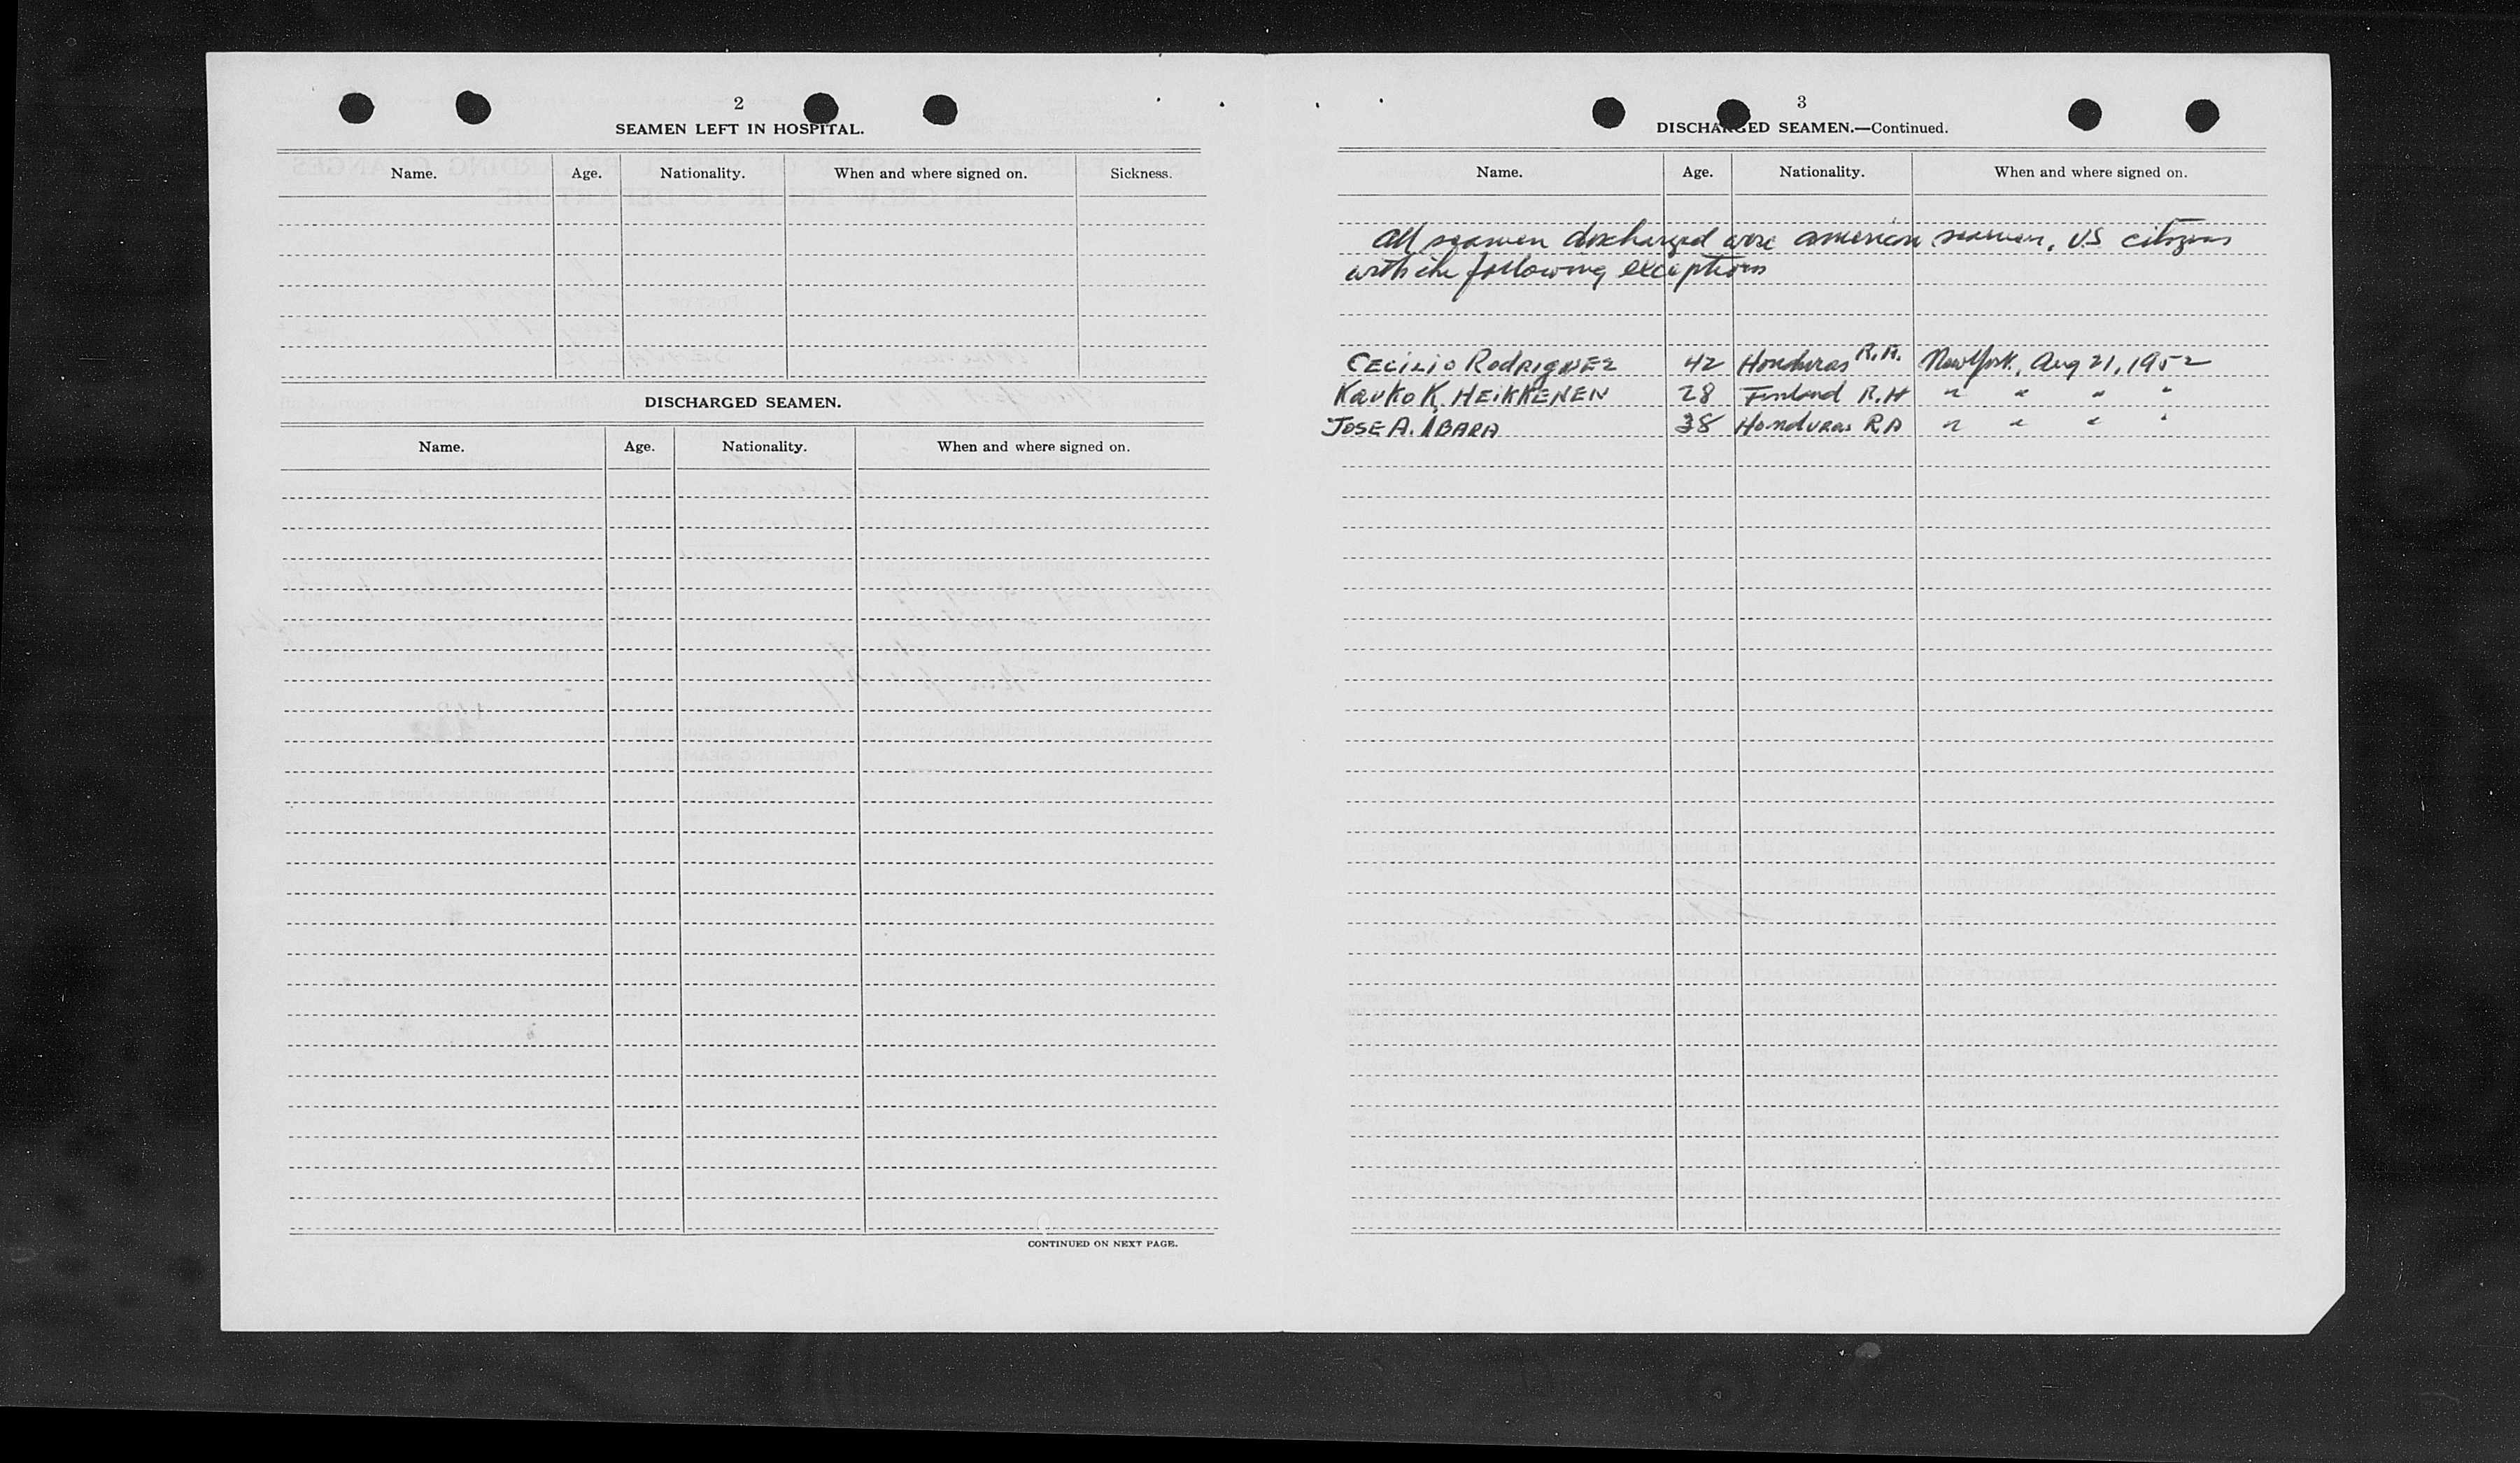 2
SEAMEN LEFT IN HOSPITAL.
Name. Age. Nationality. When and where signed on. Sickness.
DISCHARGED SEAMEN.
Name. Age. Nationality. When and where signed on.
CONTINUED ON NEXT PAGE.
3
DISCHARGED SEAMEN.—Continued.
Name. Age. Nationality. When and where signed on.
All seamen discharged were american seamen, U.S citizens
with the following exceptions
CECILIO RODRIGUEZ 42 Honduras R.A. New York, Aug 21, 1952
KAUKO K. HEIKKENEN 28 Finland R.A " " " "
JOSE A. IBARA 38 Honduras RA " " " "